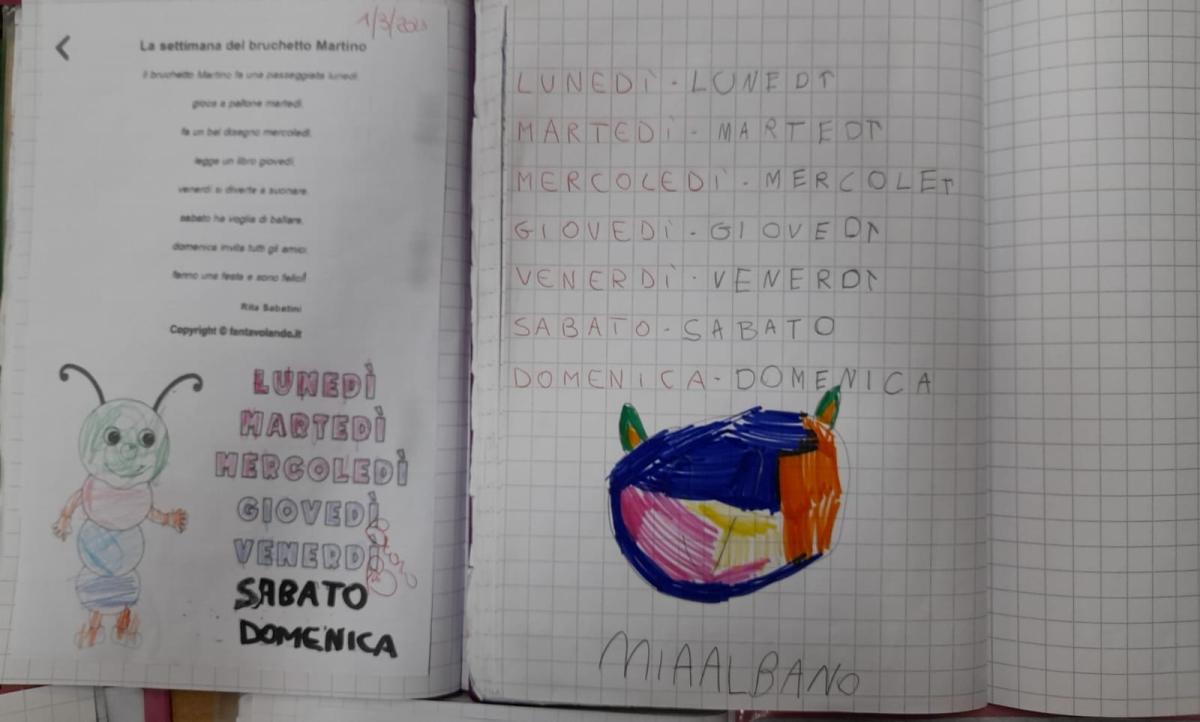 1/3/2023
La settimana del bruchetto Martino
Il bruchetto Martino fa una passeggiata lunedì,
gioca a pallone martedì,
fa un bel disegno mercoledì,
legge un libro giovedì,
venerdì si diverte a suonare,
sabato ha voglia di ballare,
domenica invita tutti gli amici:
fanno una festa e sono felici!
Rita Sabatini
Copyright © fantavolando.it
LUNEDÌ
MARTEDÌ
MERCOLEDÌ
GIOVEDÌ
VENERDÌ
SABATO
DOMENICA
LUNEDÌ - LUNEDÌ
MARTEDÌ - MARTEDÌ
MERCOLEDÌ - MERCOLEÌ
GIOVEDÌ - GIOVEDÌ
VENERDÌ - VENERDÌ
SABATO - SABATO
DOMENICA - DOMENICA
MIAALBANO